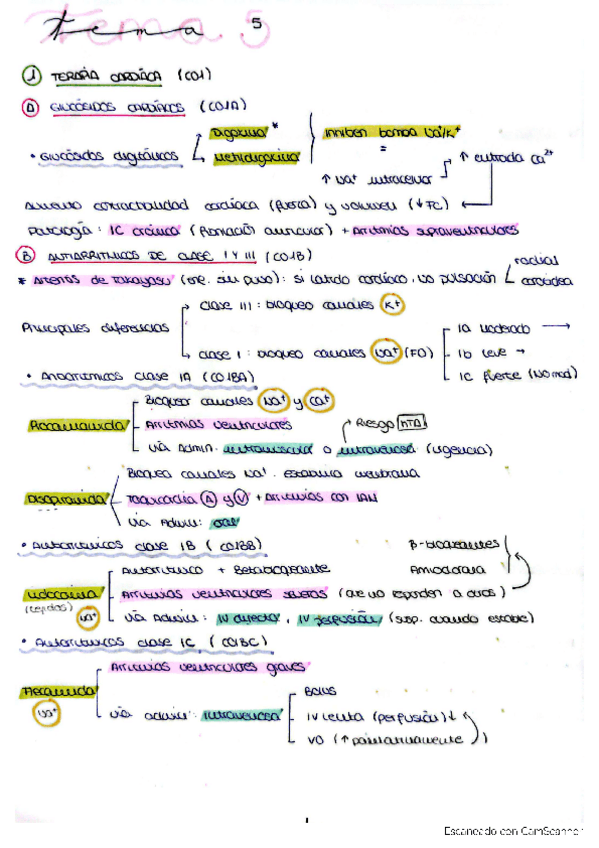 Tema. 5
5
1 TERAPIA CARDÍACA (C01)
A GLUCÓSIDOS CARDÍACOS (C01A)
• Glucósidos digitálicos
Digoxina *
Metildigoxina
Inhiben bomba Na⁺/K⁺
=
↑ Na⁺ intracelular
↑ entrada Ca²⁺
Aumento contractilidad cardíaca (fuerza) y volumen (↓FC)
Patología: IC crónica (fibrilación auricular) + Arritmias supraventriculares
B ANTIARRÍTMICOS DE CLASE I Y III (C01B)
* Arteritis de Takayasu (sin pulso): si latido cardíaco, no pulsación
radial
carótidea
Principales diferencias
clase III: bloqueo canales K⁺
clase I: bloqueo canales Na⁺ (FO)
IA Moderado →
Ib leve →
IC fuerte (No mod)
• Antiarrítmicos clase IA (C01BA)
Procainamida
Bloquear canales Na⁺ y Ca⁺
Arritmias ventriculares
vía Admin. intramuscular o intravenosa (urgencia)
Riesgo hTA
Disopiramida
Bloquea canales Na⁺. Estabiliza membrana
Taquicardia A y V + Arritmias con IAM
vía Admin: oral
• Antiarrítmicos clase IB (C01BB)
Lidocaína
(rápidas)
Na⁺
Antiarrítmico + Betabloqueante
Arritmias ventriculares severas (que no responden a otros)
vía Admin: IV directa, IV perfusión (susp. cuando estable)
β-bloqueantes
Amiodarona
• Antiarrítmicos clase IC (C01BC)
Flecainida
Na⁺
Arritmias ventriculares graves
vía admin: intravenosa
Bolus
IV lenta (perfusión) ↓
VO (↑ paulatinamente)
1
Escaneado con CamScanner